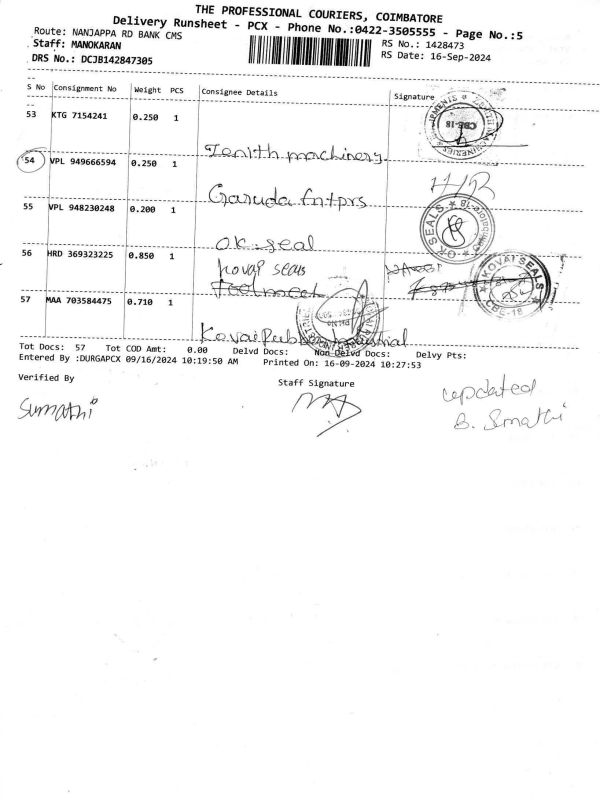 THE PROFESSIONAL COURIERS, COIMBATORE
Delivery Runsheet - PCX - Phone No.:0422-3505555 - Page No.:5
Route: NANJAPPA RD BANK CMS
RS No.: 1428473
Staff: MANOKARAN
RS Date: 16-Sep-2024
DRS No.: DCJB142847305
S No Consignment No Weight PCS Consignee Details Signature
53 KTG 7154241 0.250 1
CBE-18
Zenith machinery
54 VPL 949666594 0.250 1
Garuda Entprs
55 VPL 948230248 0.200 1
OK SEALS Coimbatore-18
OK seal
56 HRD 369323225 0.850 1
kovai seals
KOVAI SEALS CBE-18
57 MAA 703584475 0.710 1
Kovai Rubber Industrial
Tot Docs: 57 Tot COD Amt: 0.00 Delvd Docs: Non Delvd Docs: Delvy Pts:
Entered By :DURGAPCX 09/16/2024 10:19:50 AM Printed On: 16-09-2024 10:27:53
Verified By
Staff Signature
Sumathi
updated
B. Sumathi